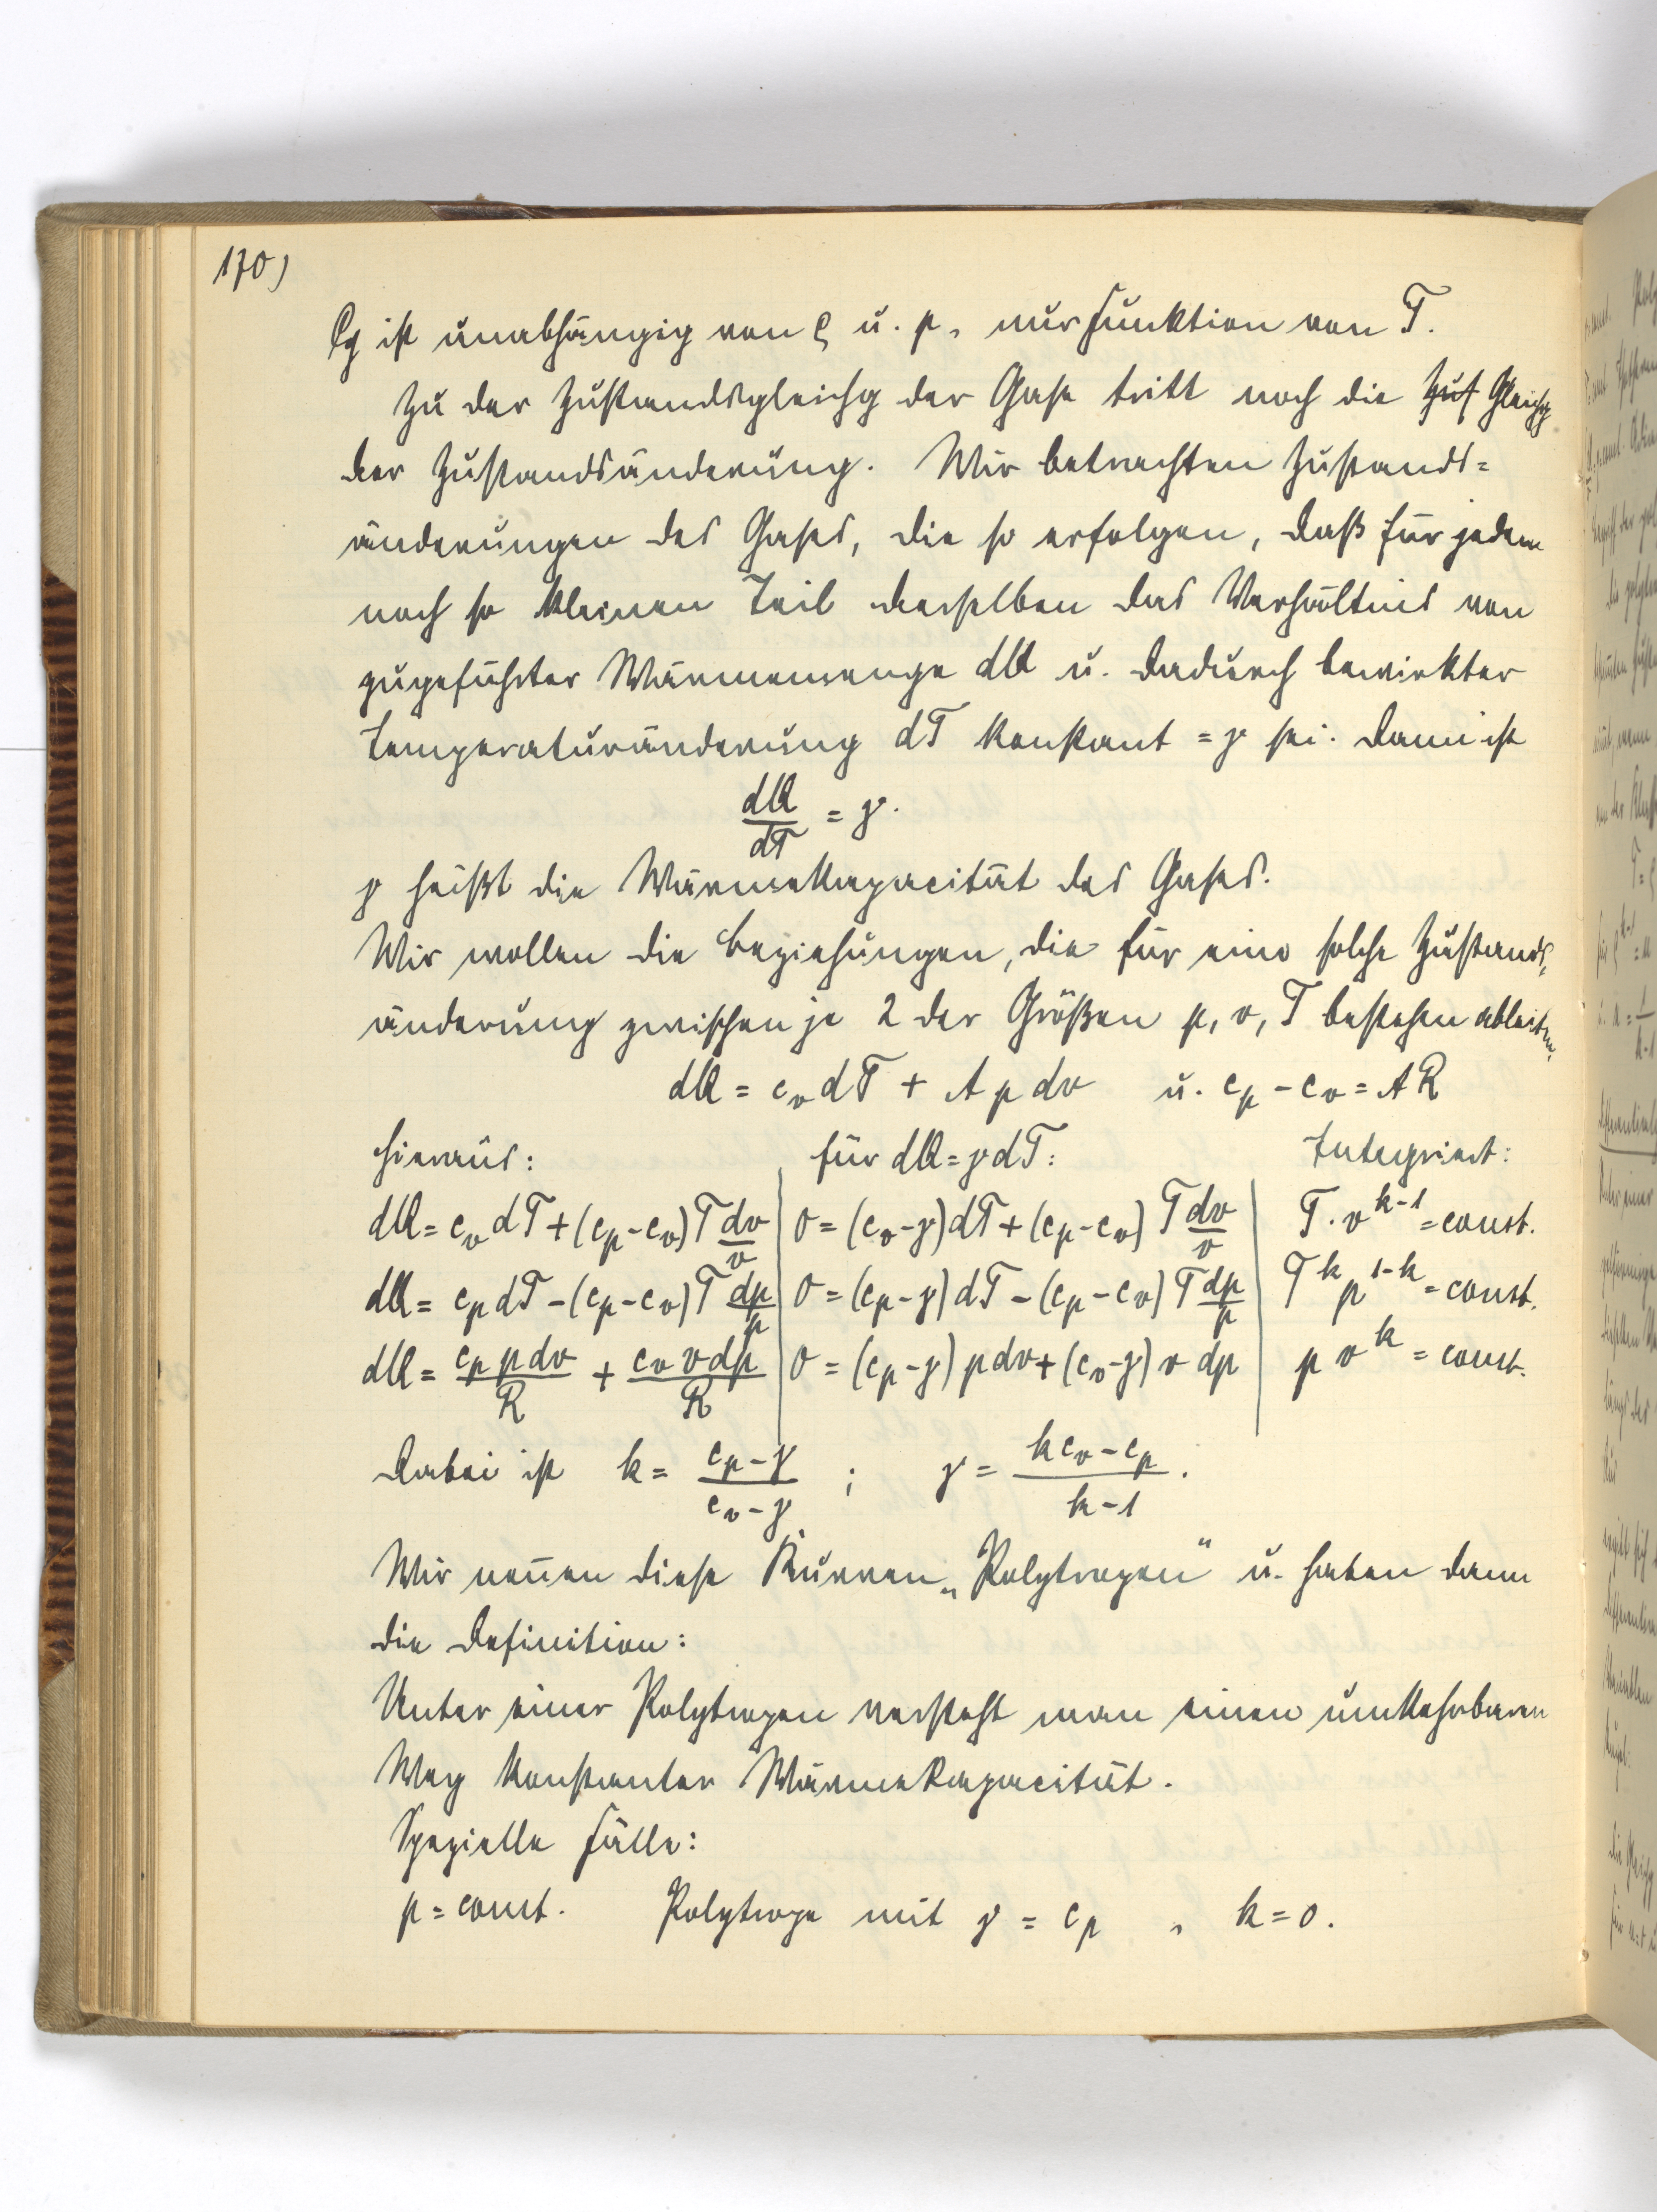 170)
ist unabhängig von ρ u. p, nur Funktion von T.
Zu der Zustandsgleichg der Gase tritt noch die Zus Gleichg
der Zustandsänderung. Wir betrachten Zustands=
änderungen des Gases, die so erfolgen, daß für jeden
noch so kleinen Teil desselben das Verhältnis von
zugeführter Wärmemenge dQ u. dadurch bewirkter
Temperaturänderung dT konstant = γ sei. Dann ist
dQ/dT = γ.
γ heißt die Wärmekapacität des Gases.
Wir wollen die Beziehungen, die für eine solche Zustands=
änderung zwischen je 2 der Größen p, v, T bestehen ableiten.
dQ = c_v dT + A p dv u. c_p - c_v = AR
Hieraus: für dQ = γdT: Integriert:
dQ = c_v dT + (c_p - c_v) T dv/v | 0 = (c_v - γ) dT + (c_p - c_v) T dv/v | T · v^{k-1} = const.
dQ = c_p dT - (c_p - c_v) T dp/p | 0 = (c_p - γ) dT - (c_p - c_v) T dp/p | T^k p^{1-k} = const.
dQ = c_p p dv/R + c_v v dp/R | 0 = (c_p - γ) p dv + (c_v - γ) v dp | p v^k = const.
Dabei ist k = (c_p - γ)/(c_v - γ) ; γ = (k c_v - c_p)/(k - 1).
Wir nennen diese Kurven „Polytropen" u. haben dann
die Definition:
Unter einer Polytropen versteht man einen umkehrbaren
Weg konstanter Wärmekapacität.
Spezielle Fälle:
p = const. Polytrope mit γ = c_p , k = 0.